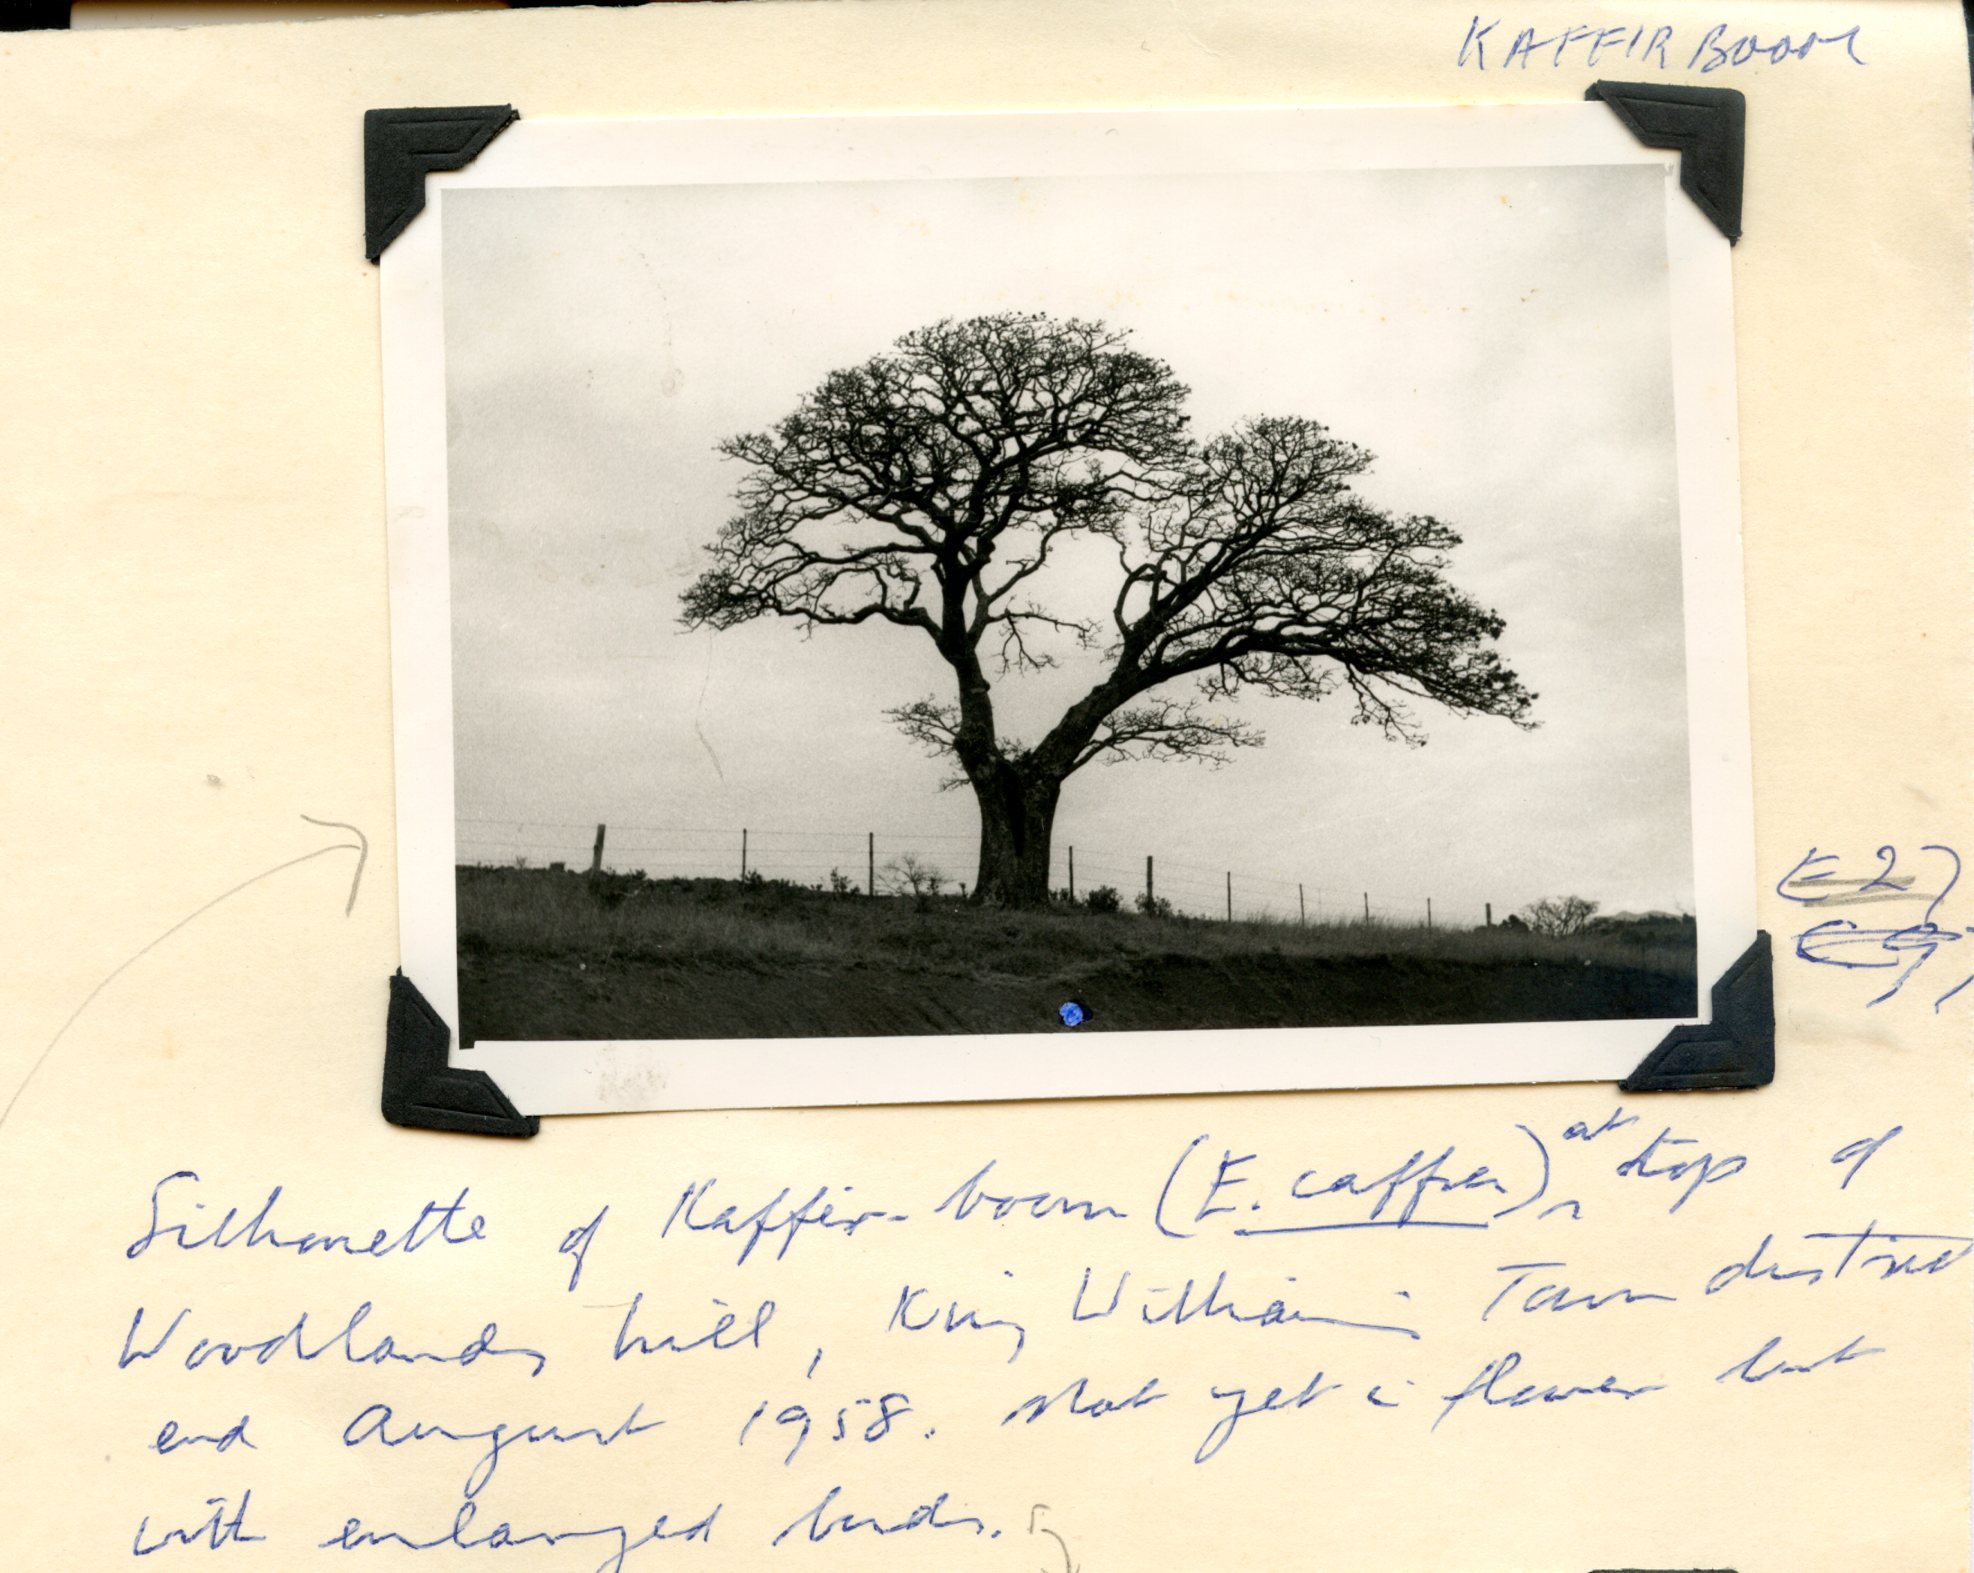 KAFFIRBOOM
E27
Silhouette of Kaffir-boom (E. caffra), at top of
Woodlands hill, King William's Town district
end August 1958. Not yet in flower but
with enlarged buds.